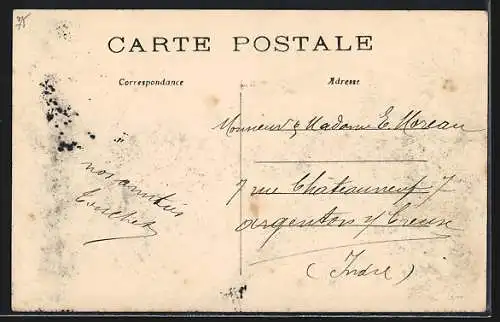 35
CARTE POSTALE
Correspondance
Adresse
Monsieur & Madame E. Moreau
nos amitiés
7 rue Châteauneuf 7
argenton s/ Creuse
(Indre)